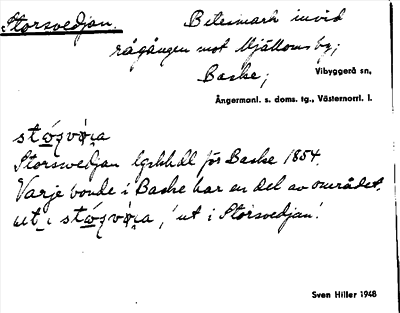 Storsvedjan.
Betesmark invid
rågången mot Mjällomsby;
Baske;
Vibyggerå sn,
Ångermanl. s. doms. tg., Västernorrl. l.
Storsvedjan lgskhdl för Baske 1854.
Varje bonde i Baske har en del av området.
ut i 'ut i Storsvedjan'.
Sven Hiller 1948